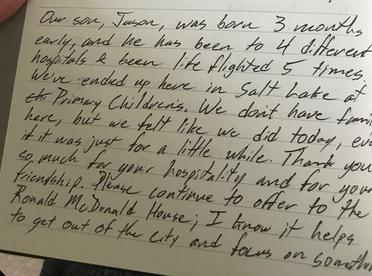 Our son, Jason, was born 3 months
early, and he has been to 4 different
hospitals & been life flighted 5 times.
We've ended up here in Salt Lake at
Primary Children's. We don't have
here, but we felt like we did today,
if it was just for a little while. Thank you
so much for your hospitality and for your
friendship. Please continue to offer to the
Ronald McDonald House; I know it helps
to get out of the city and focus on